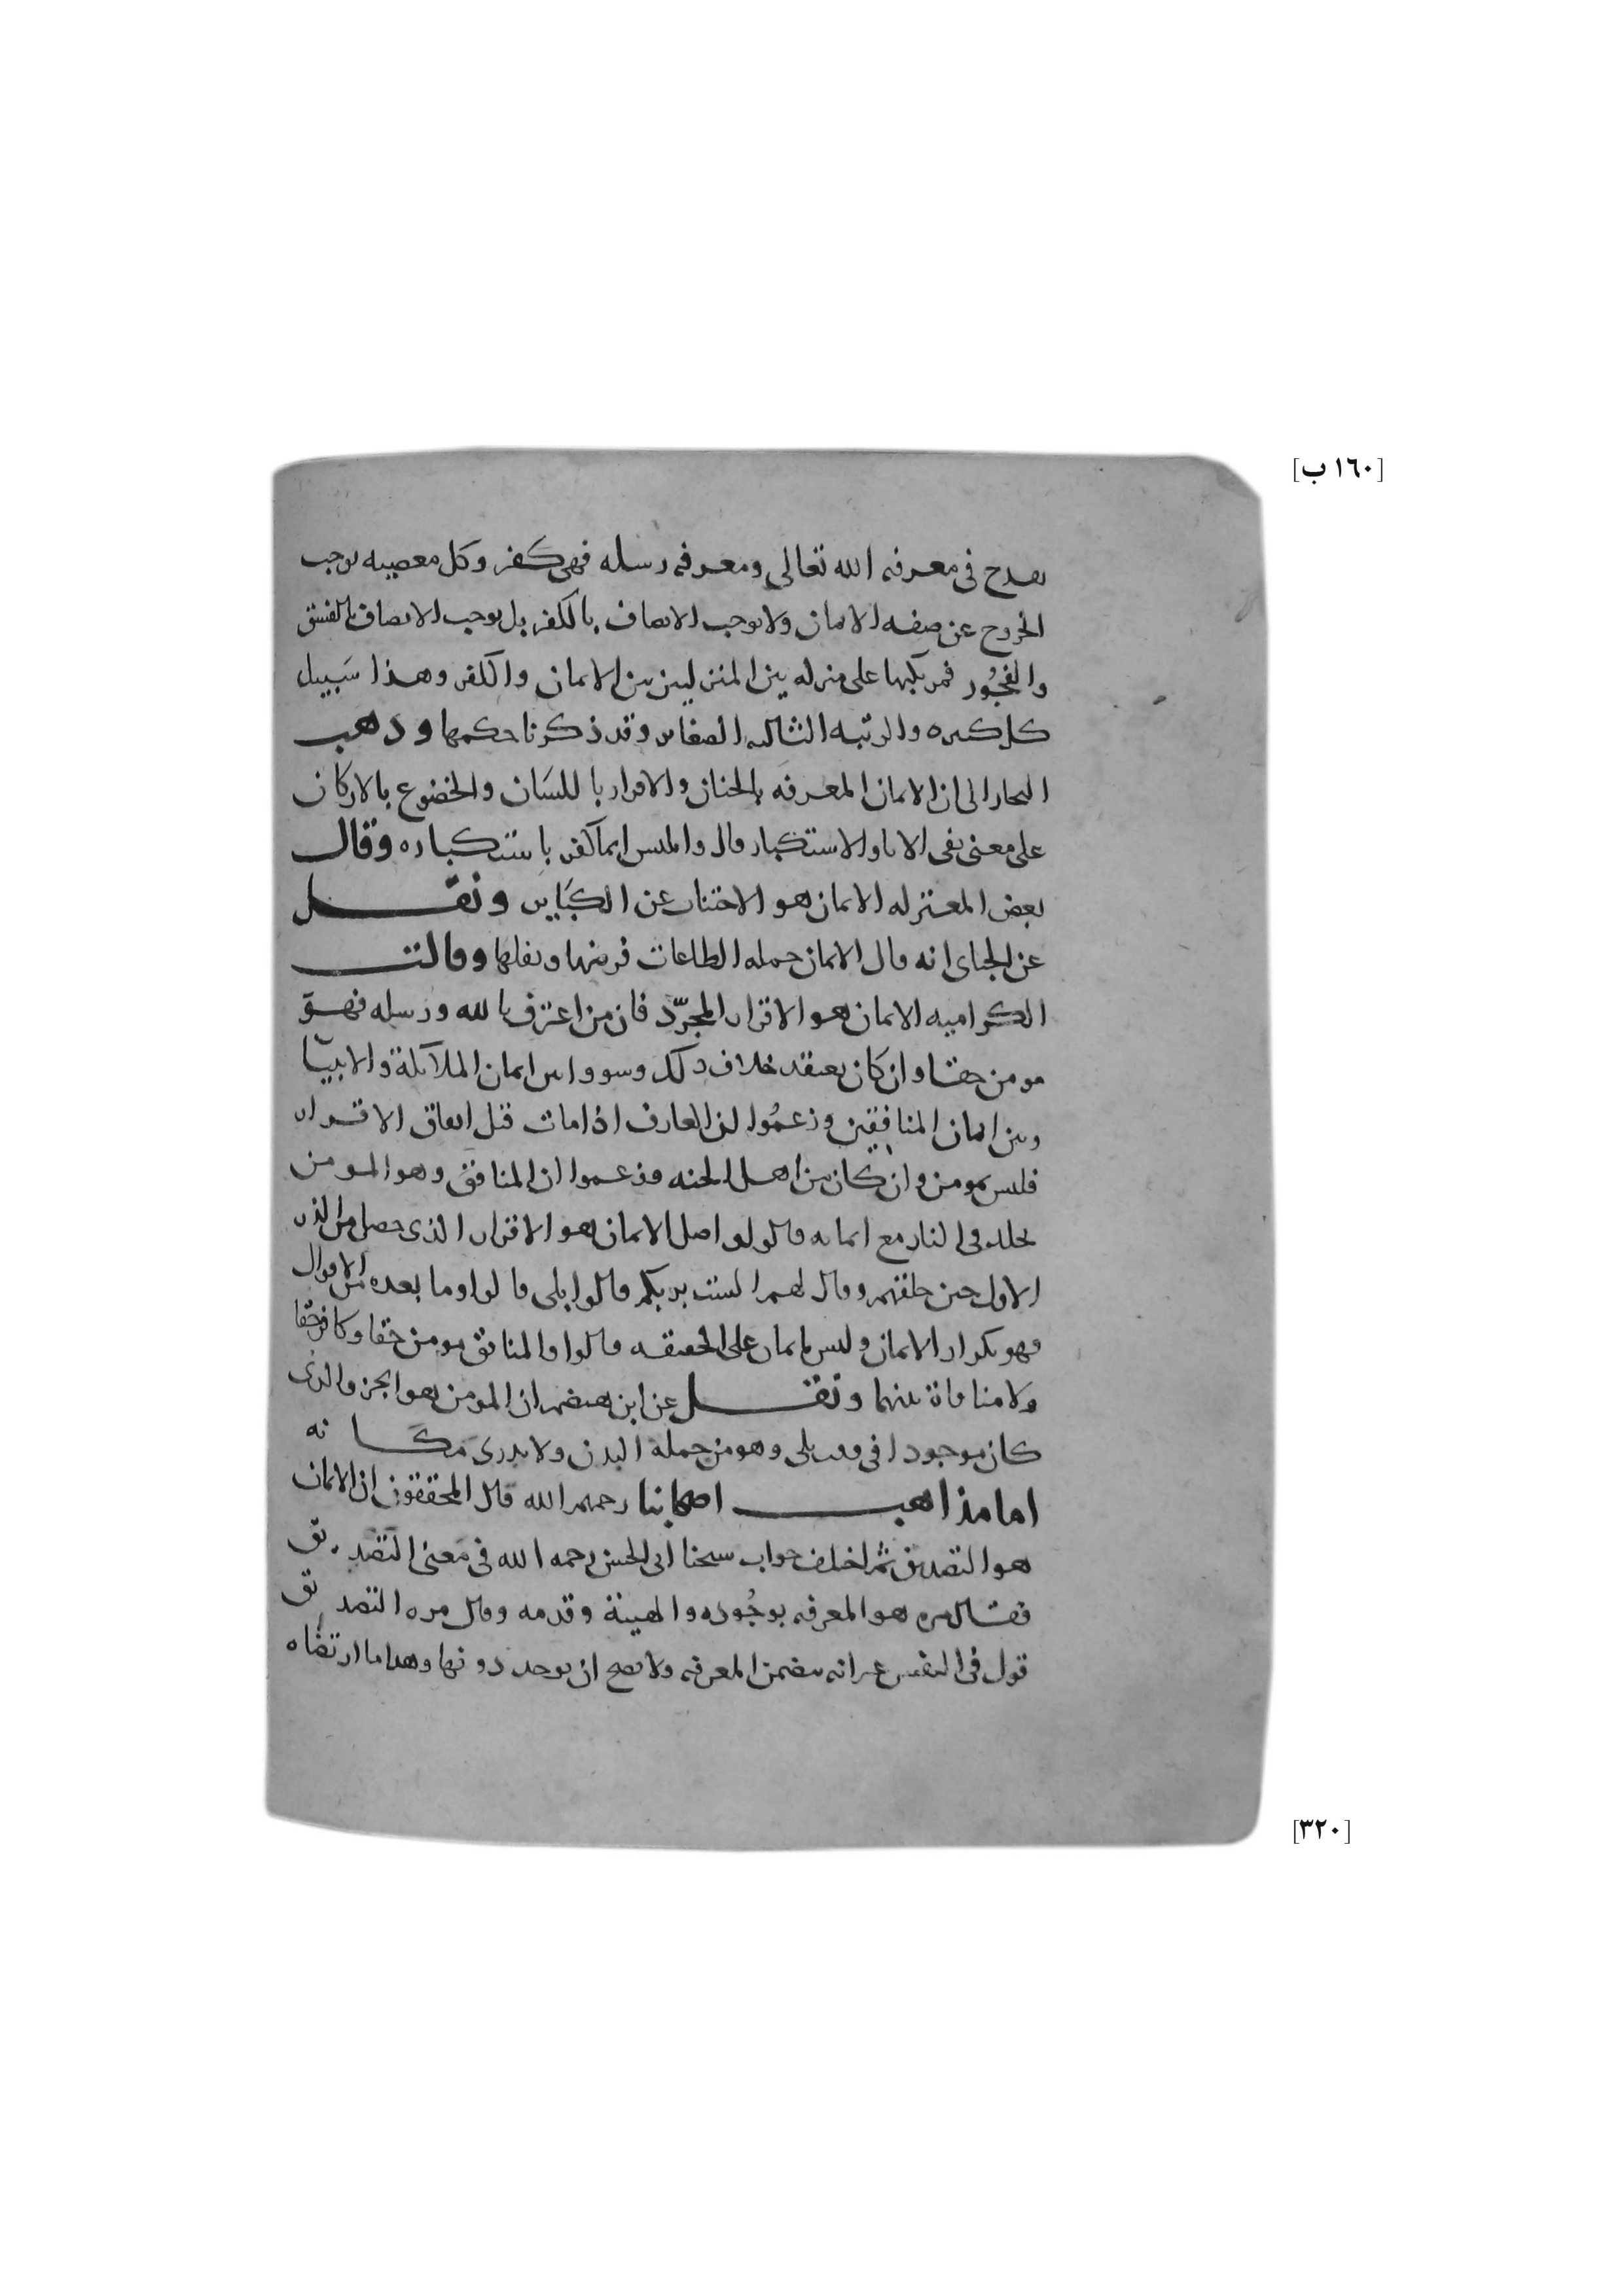 [١٦٠ ب]
يقدح في معرفه الله تعالى ومعرفه رسله فهى كفر وكل معصيه توجب
الخروج عن صفه الايمان ولا توجب الاتصاف بالكفر بل توجب الاتصاف بالفسق
والفجُور فمرتكبها على منزله بين المنزلتين بين الايمان والكفر وهذا سَبيل
كل كبيره والرتبه الثالثه الصغاير وقد ذكرنا حكمها وذهب
النجار الى ان الايمان المعرفه بالجنان والاقرار باللسَان والخضوع بالاركان
على معنى نفى الابا والاستكبار قال وابليس انما كفر باستكباره وقال
بعض المعتزله الايمان هو الاجتناب عن الكبَاير ونقل
عن الجباى انه قال الايمان جمله الطاعات فرضها ونفلها وقالت
الكراميه الايمان هو الاقرار المجرّد فان من اعترف بالله ورسله فهو
مومن حقا وان كان يعتقد خلاف ذلك وسووا بين ايمان الملائكة والانبيا
وبين ايمان المنافقين وزعمُوا ان العارف اذا مات قبل اتفاق الاقرار
فليس بمومن وان كان من اهل الجنه وزعموا ان المنافق وهو المومن
يخلد في النار مع ايمانه قالوا واصل الايمان هو الاقرار الذى حصل من الذر
الاول حين خلقهم وقال لهم الست بربكم قالوا بلى قالوا وما بعده من الاقوال
فهو تكرار الايمان وليس بايمان على الحقيقه قالوا والمنافق مومن حقا وكافر حقا
ولا منافاة بينهما ونقل عن ابن هيضم ان المومن هو الجزو الذى
كان موجودا في وقت بلى وهو من جملة البدن ولا يدرى مكَانه
اما مذاهب اصحابنا رحمهم الله قال المحققون ان الايمان
هو التصديق ثم اختلف جواب شيخنا ابي الحسن رحمه الله في معنى التصديق
فقال مره هو المعرفه بوجُوده والهيته وقدمه وقال مره التصديق
قول في النفس غير انه يتضمن المعرفه ولا يصح ان يوجد دونها وهذا ما ارتضاه
[٣٢٠]